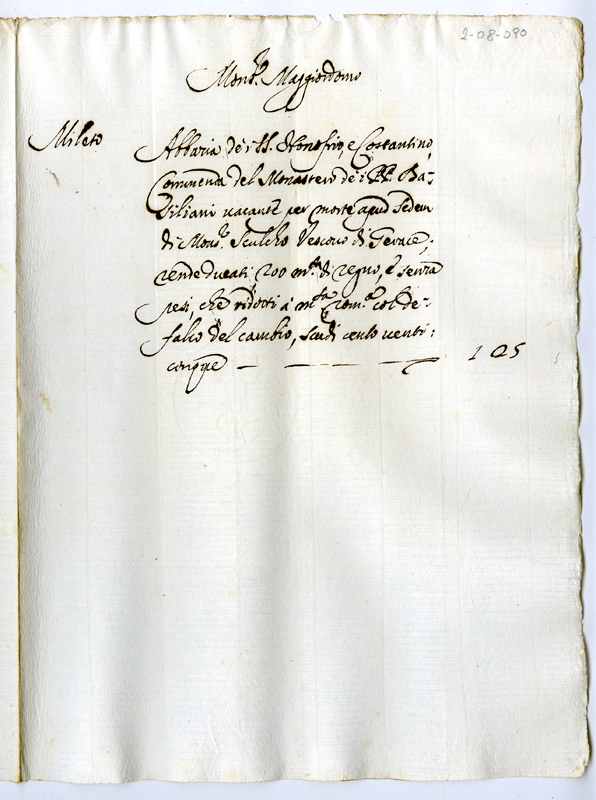 2-08-090
Mons.r Maggiordomo
Mileto
Abbazia de i SS. Honofrio, e Costantino,
Commenda del Monastero de i PP. Ba-
siliani vacante per morte apud sedem
di Mons.r Sculcho Vescovo di Gerace;
rende ducati 200 m.ta di regno, e senza
pesi, che ridotti à m.ta rom.a col de-
falco del cambio, scudi cento venti:
cinque
125